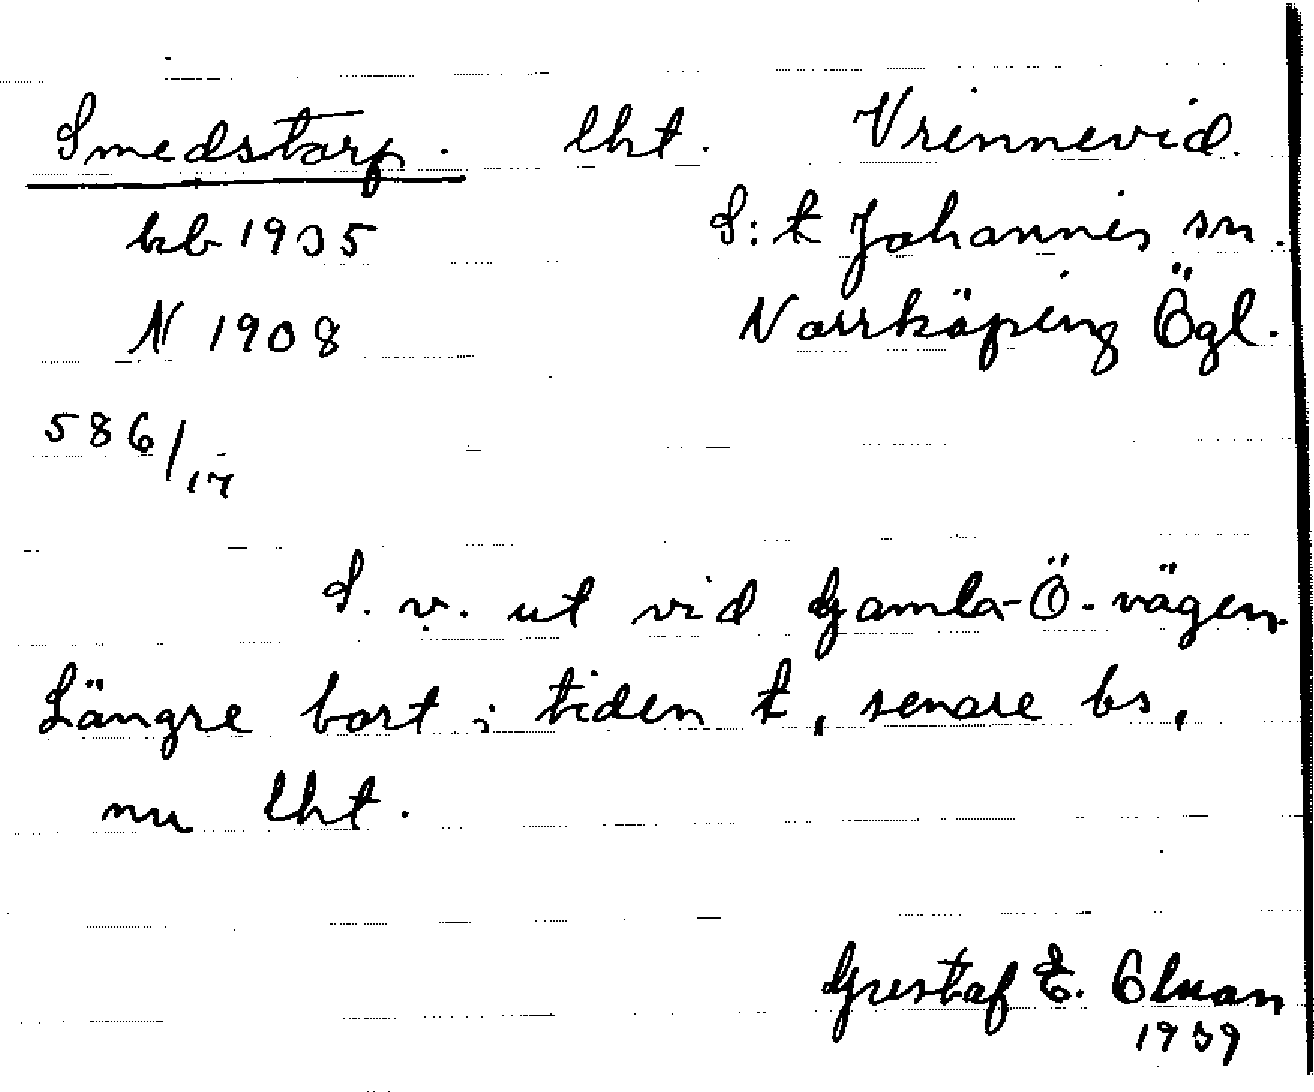 Smedstorp. lht. Vrinnevid.
kb 1935 S:t Johannis sn.
N 1908 Norrköping Ögl.
586/17
S. v. ut vid Gamla-Ö-vägen
Längre bort i tiden t, senare bs,
nu lht.
Gustaf E.
1939